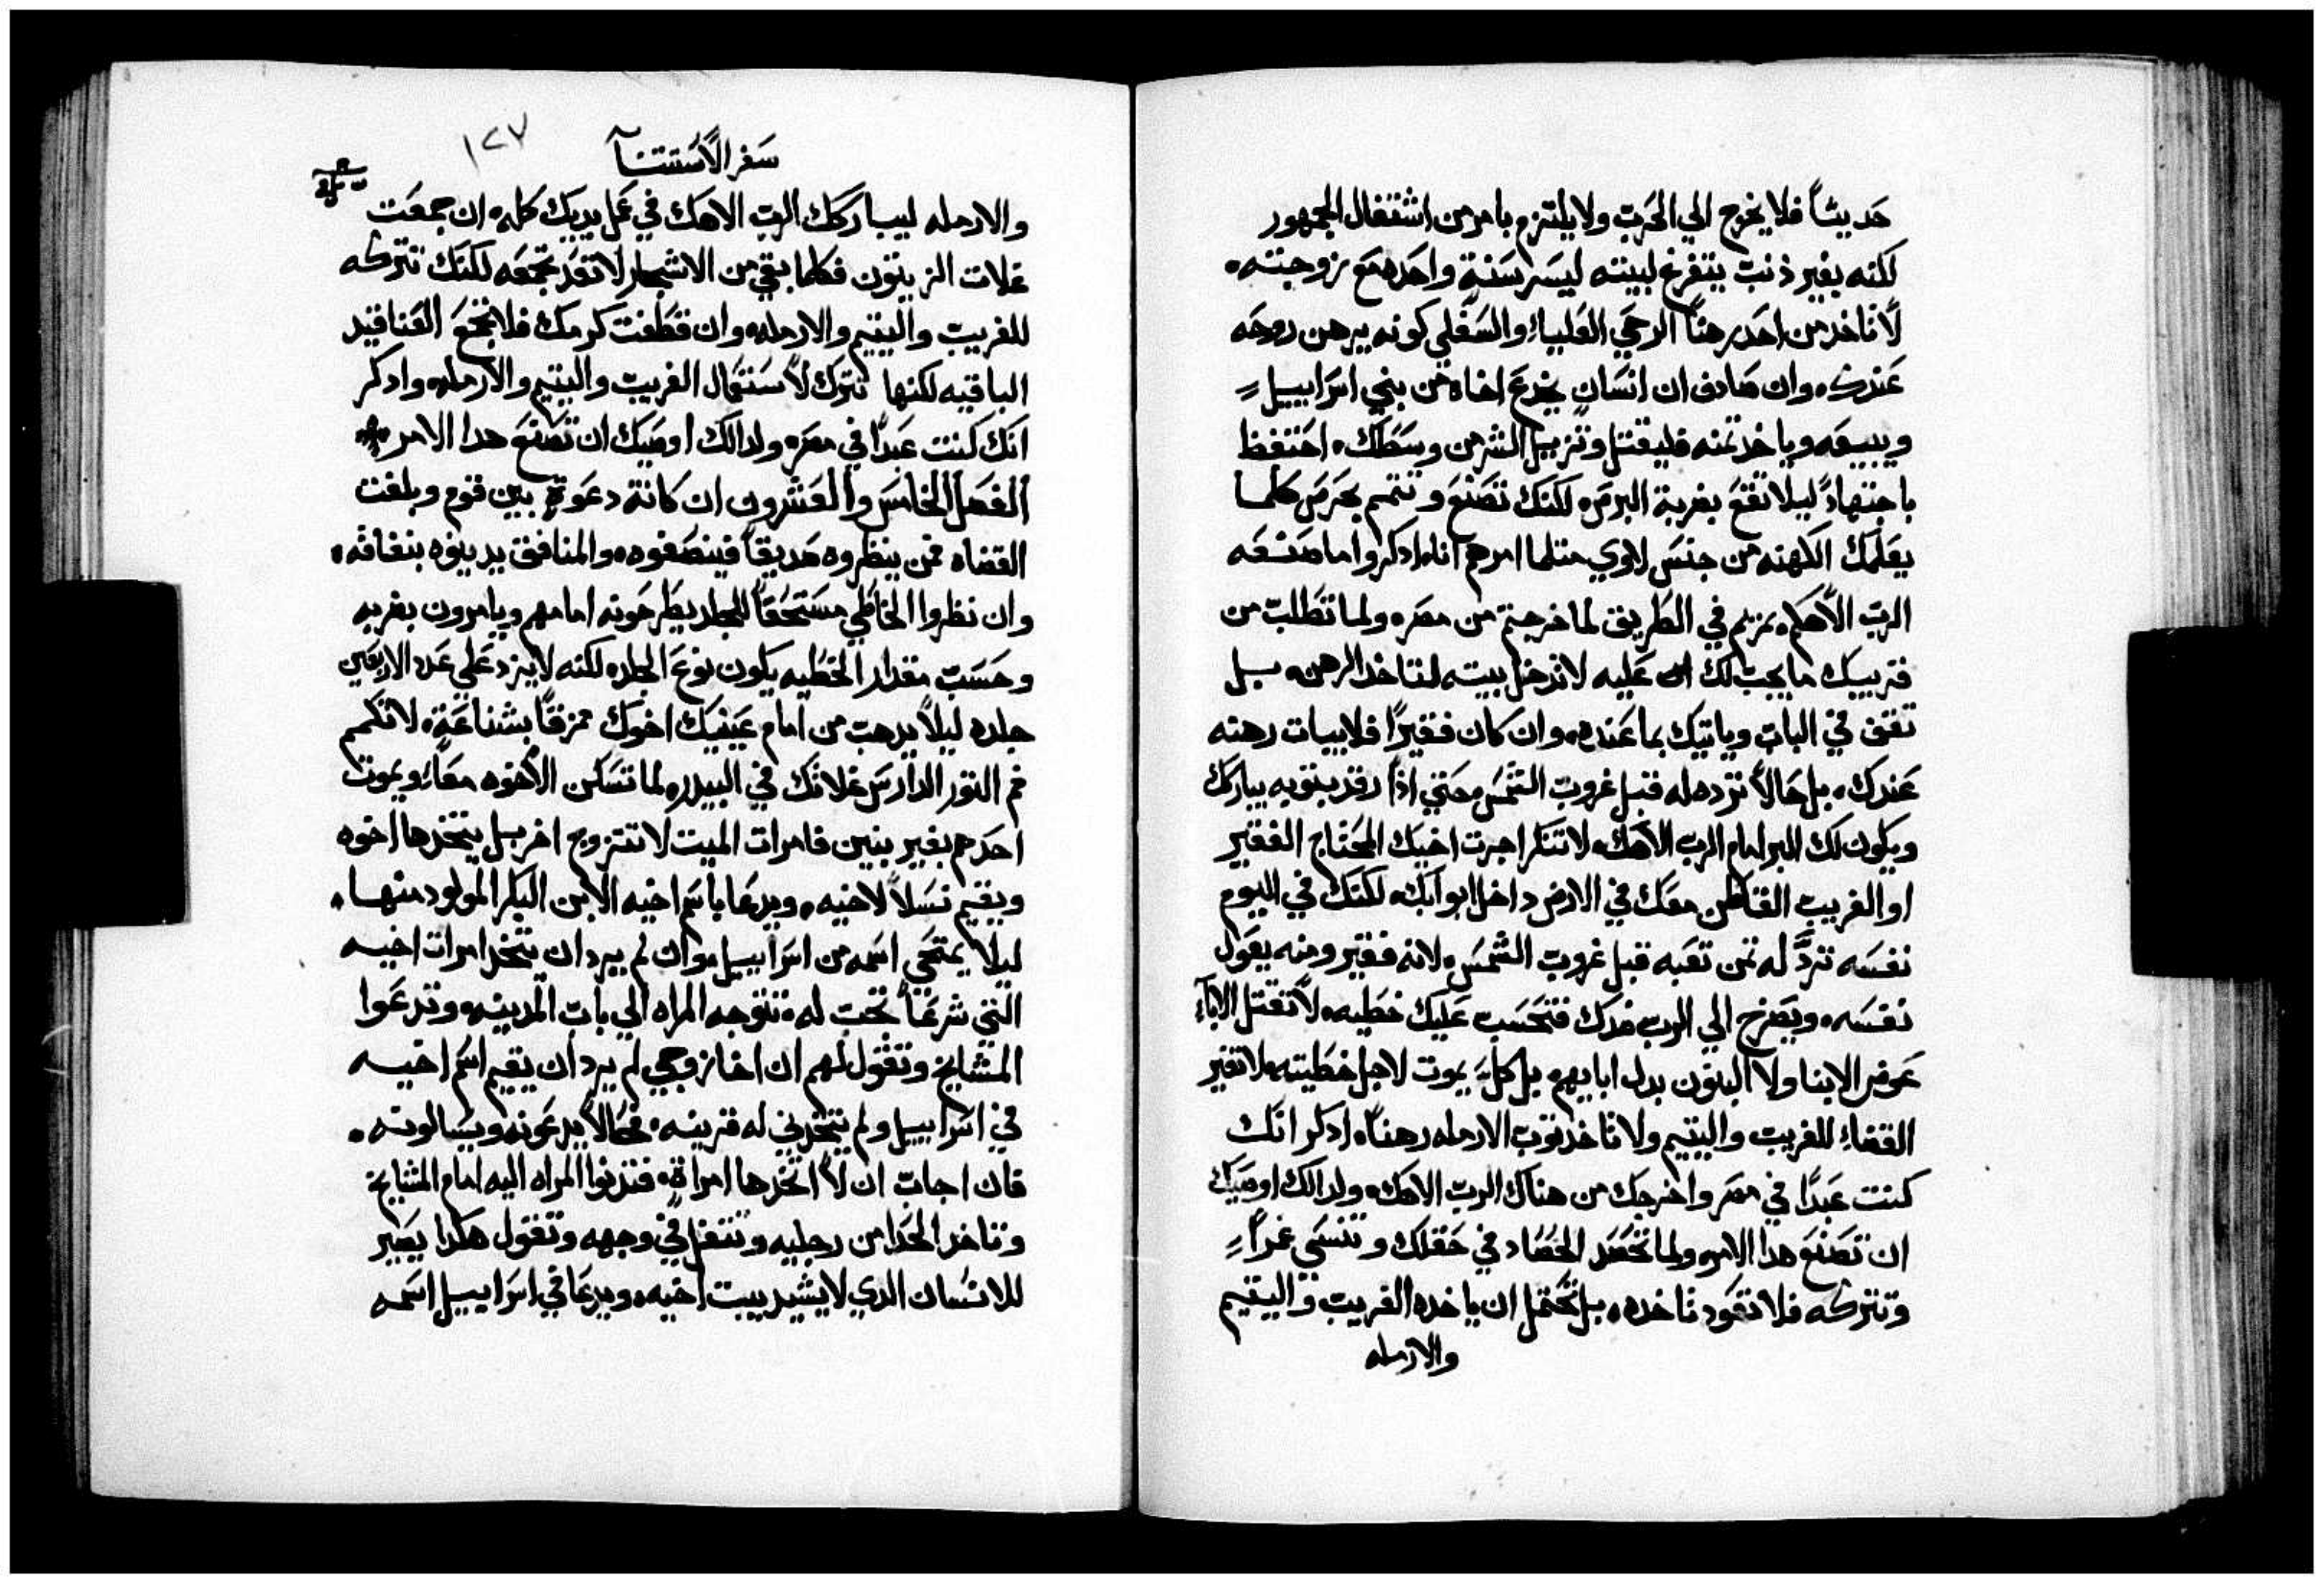 حديثاً فلا يخرج الي الحرب ولا يلتزم بامر من اشتغال الجمهور
لكنه بغير ذنب يتفرغ لبيته ليسر سنة واحده مع زوجته،
لا تاخد من احد رهناً الرحي العلياءِ والسفلي كونه يرهن روحه
عندك، وان صادف ان انسان يخدع اخاه من بني اسراييل
ويبيعه وياخد تمنه فليقتل وتزيل الشر من وسطك، احتفظ
باجتهادً ليلا تقع بضربة البرص، لكنك تصنع وتتمم بحرص كلما
يعلمك الكهنه من جنس لاوي متلما امرهم انا، ادكروا ما صنعه
الرب الاهكم بمريم في الطريق لما خرجتم من مصر، ولما تطلب من
قريبك ما يجب لك عليه لا تدخل بيته لتاخد الرهن، بل
تقف في الباب وياتيك بما عنده، وان كان فقيرًا فلا يبات رهنه
عندك، بل حالاً ترده له قبل غروب الشمس، حتي اذا رقد بتوبه يباركك
ويكون لك البر امام الرب الاهك، لا تنكر اجرت اخيك المحتاج الفقير
او الغريب القاطن معك في الارض داخل ابوابك، لكنك في اليوم
نفسه تردَّ له تمن تعبه قبل غروب الشمس، لانه فقير ومنه يقول
نفسه، ويصرخ الي الرب ضدك فتحسب عليك خطيه، لا تقتل الاباءِ
عوض الابنا ولا البنون بدل ابايهم، بل كلٍ يموت لاجل خطيته، لا تغير
القضاءِ للغريب واليتيم ولا تاخد توب الارمله رهناً، ادكر انك
كنت عبدًا في مصر واخرجك من هناك الرب الاهك، ولدالك اوصيك
ان تصنع هدا الامر، ولما تحصد الحصاد في حقلك وتنسي غمراً
وتتركه فلا تعود تاخده، بل تحتمل ان ياخده الغريب واليتيم
والارمله
سفر الاستتنآ
١٢٧
والارمله ليباركك الرب الاهك في عمل يديك كله، ان جمعت
غلات الزيتون فكلما بقي من الاشجار لا تعد تجمعه لكنك تتركه
للغريب واليتيم والارمله، وان قطفت كرمك فلا تجمع العناقيد
الباقيه لكنها تترك لاستعمال الغريب واليتيم والارمله، وادكر
انك كنت عبدًا في مصر، ولدالك اوصيك ان تصنع هدا الامر
الفصل الخامس والعشرون ان كانة دعوة بين قوم وبلغت
القضاه فمن ينظروه صديقاً فينصفوه، والمنافق يدينوه بنفاقه،
وان نظروا الخاطي مستحقاً للجلد يطرحونه امامهم ويامرون بضربه
وحسب مقدار الخطيه يكون نوع الجلد، لكنه لا يزد علي عدد الاربعين
جلده ليلاً يدهب من امام عينيك اخوك ممزقاً بشناعة، لا تكمم
فم التور الدارس غلاتك في البيدر، لما تسكن الاخوه معاً، ويموت
احدهم بغير بنين فامرات الميت لا تتزوج اخر بل يتخدها اخوه
ويقيم نسلاً لاخيه، ويدعا باسم اخيه الابن البكر المولود منها،
ليلاً يمتحي اسمه من اسراييل، وان لم يرد ان يتخد امرات اخيه
التي شرعاً تجب له، تتوجه المراه الي باب المدينه، وتدعوا
المشايخ وتقول لهم ان اخا زوجي لم يرد ان يقيم اسم اخيه
في اسراييل ولم يتخدني له قرينه، فحالاً يدعونه ويسالونه،
فان اجاب ان لا اتخدها امراة، فتدنوا المراه اليه امام المشايخ
وتاخد الحدا من رجليه وتتفل في وجهه وتقول هكدا يصير
للانسان الدي لا يشيد بيت اخيه، ويدعا في اسراييل اسمه